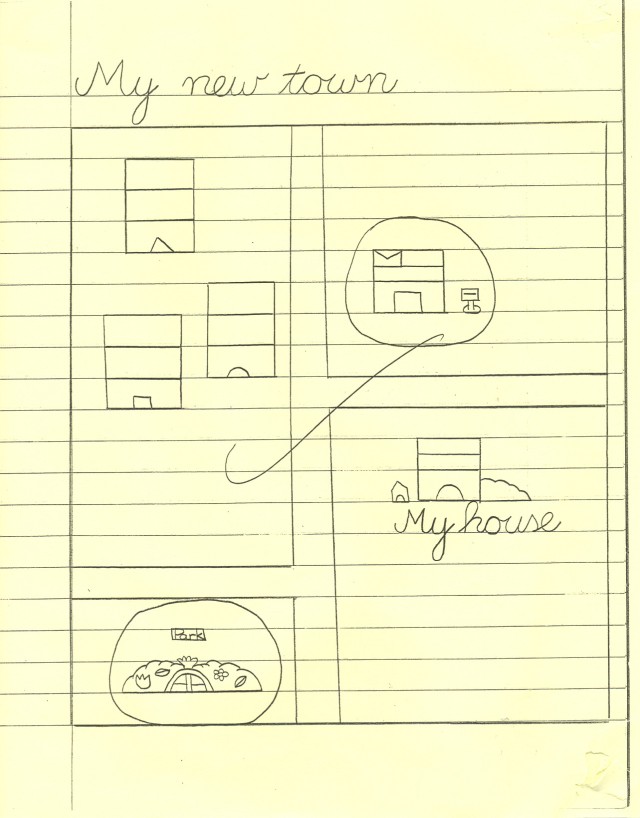 My new town
Park
My house